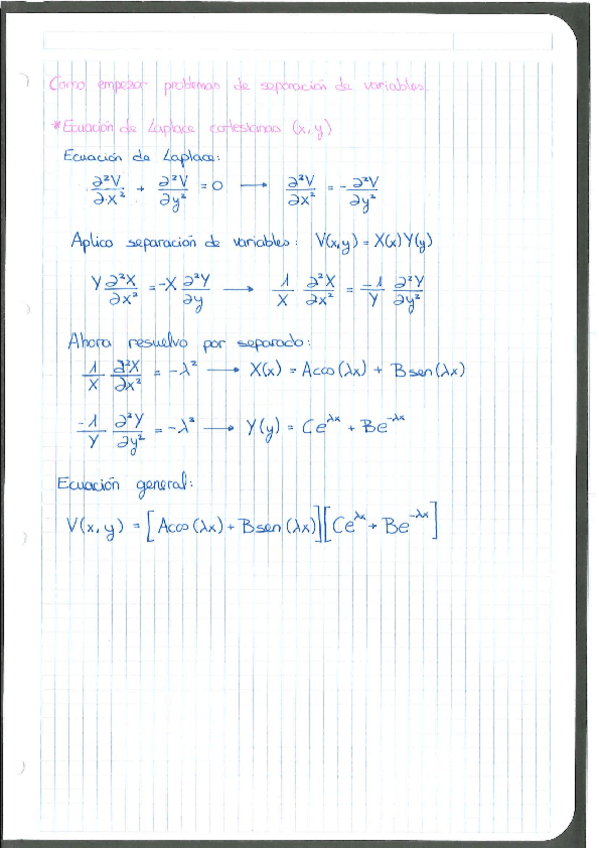 Como empezar problemas de separación de variables.
*Ecuación de Laplace cartesianas (x,y)
Ecuación de Laplace:
∂²V/∂x² + ∂²V/∂y² = 0 → ∂²V/∂x² = -∂²V/∂y²
Aplico separación de variables: V(x,y) = X(x)Y(y)
Y ∂²X/∂x² = -X ∂²Y/∂y → 1/X ∂²X/∂x² = -1/Y ∂²Y/∂y²
Ahora resuelvo por separado:
1/X ∂²X/∂x² = -λ² → X(x) = Acos(λx) + Bsen(λx)
-1/Y ∂²Y/∂y² = -λ² → Y(y) = Ce^{λx} + Be^{-λx}
Ecuación general:
V(x,y) = [Acos(λx) + Bsen(λx)][Ce^{λx} + Be^{-λx}]